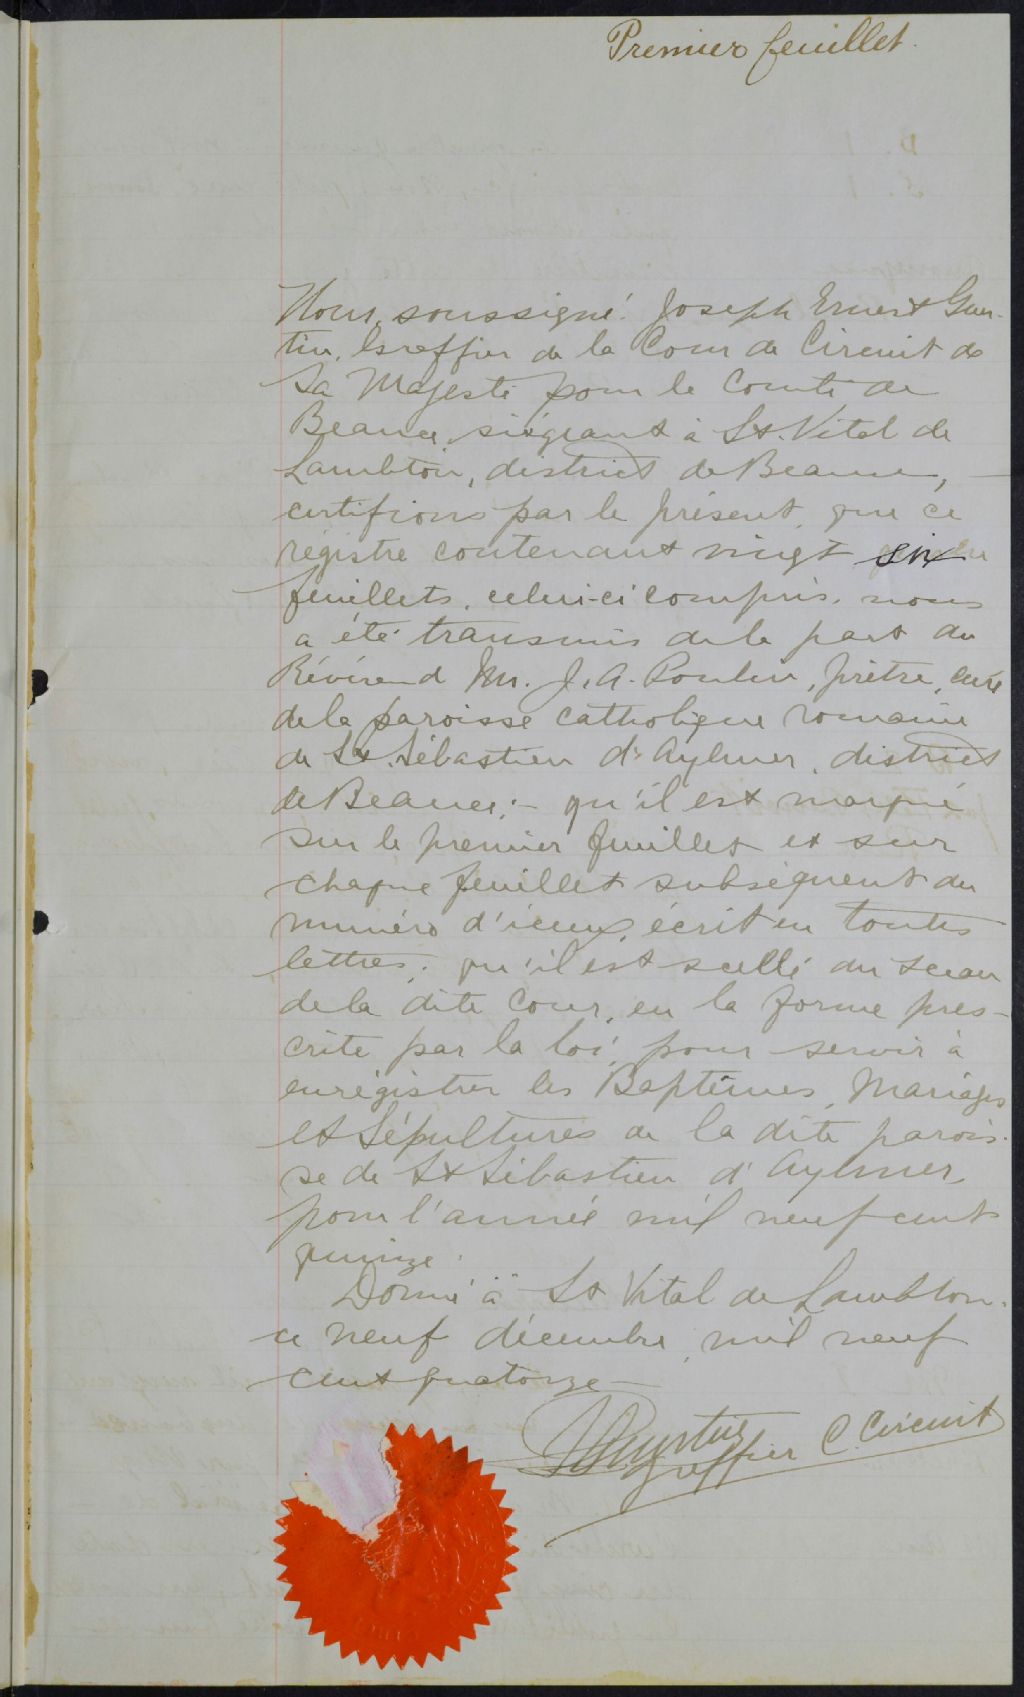 Premier feuillet.
Nous, soussigné. Joseph Ernest
Greffier de la Cour de Circuit de
Sa Majesté pour le Comté de
Beauce, siégeant à St. Vital de
Lambton, district de Beauce, —
certifions par le présent, que ce
régistre contenant vingt six
feuillets, celui-ci compris, nous
a été transmis de la part du
Révérend Mr. J. A. Poulin, prêtre, curé
de la paroisse catholique romaine
de St. Sébastien d'Aylmer, district
de Beauce; — qu'il est marqué
sur le premier feuillet et sur
chaque feuillet subséquent du
numéro d'iceux, écrit en toutes
lettres; qu'il est scellé du sceau
de la dite Cour, en la forme pres-
crite par la loi, pour servir à
enrégistrer les Baptêmes, Mariages
et Sépultures de la dite parois-
se de St Sébastien d'Aylmer,
pour l'année mil neuf cent
quinze.
Donné à St Vital de Lambton
ce neuf décembre, mil neuf
cent quatorze —
Greffier C. Circuit